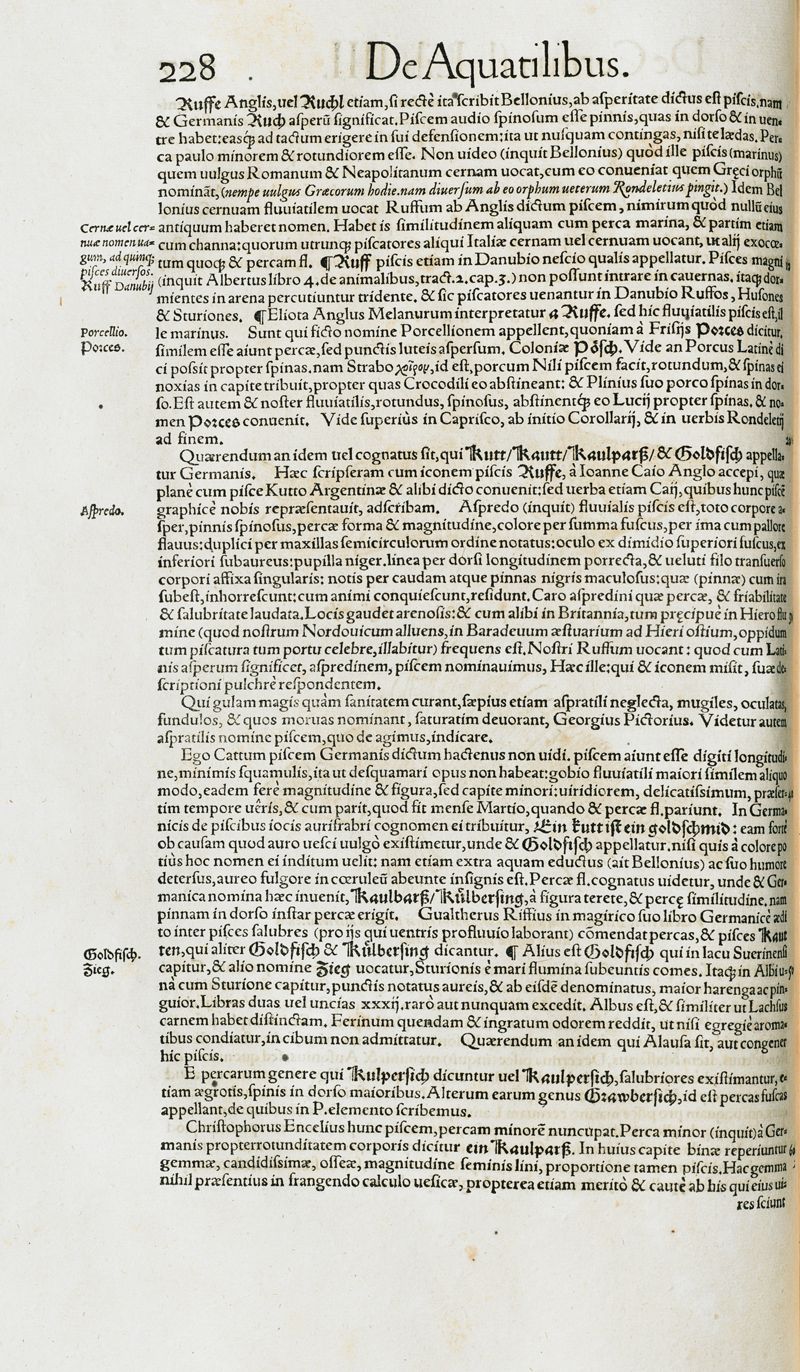 228 . De Aquatilibus.
Ruffe Anglis, uel Ruchl etiam, ſi rectè ita ſcribit Bellonius, ab aſperitate dictus eſt piſcis. nam
& Germanis Ruch aſperũ ſignificat. Piſcem audio ſpinoſum eſſe pinnis, quas in dorſo & in uen⸗
tre habet: easq́ ad tactum erigere in ſui defenſionem: ita ut nuſquam contingas, niſi te lædas. Per⸗
ca paulo minorem & rotundiorem eſſe. Non uideo (inquit Bellonius) quòd ille piſcis (marinus)
quem uulgus Romanum & Neapolitanum cernam uocat, cum eo conueniat quem Gręci orphũ
nominãt, (nempe uulgus Græcorum hodie. nam diuerſum ab eo orphum ueterum Rondeletius pingit.) Idem Bel
lonius cernuam fluuiatilem uocat Ruffum ab Anglis dictum piſcem, nimirum quòd nullũ eius
Cernæ uel cer⸗ antiquum haberet nomen. Habet is ſimilitudinem aliquam cum perca marina, & partim etiam
nuæ nomen ua⸗ cum channa: quorum utrunq; piſcatores aliqui Italiæ cernam uel cernuam uocant, ut alij exocœ⸗
gum, ad quinq; tum quoq; & percam fl. ¶ Ruff piſcis etiam in Danubio neſcio qualis appellatur. Piſces magni
piſces diuerſos.
Ruff Danubij (inquit Albertus libro 4. de animalibus, tract. 2. cap. 3.) non poſſunt intrare in cauernas. itaq; dor⸗
mientes in arena percutiuntur tridente. & ſic piſcatores uenantur in Danubio Ruffos, Huſones
& Sturiones. ¶ Eliota Anglus Melanurum interpretatur a Ruffe. ſed hic fluuiatilis piſcis eſt, il
Porcellio. le marinus. Sunt qui ficto nomine Porcellionem appellent, quoniam à Friſijs Porces dicitur,
Porces. ſimilem eſſe aiunt percæ, ſed punctis luteis aſperſum. Coloniæ Pöſch. Vide an Porcus Latinè di
ci poſsit propter ſpinas. nam Strabo χοῖρον, id eſt, porcum Nili piſcem facit, rotundum, & ſpinas ei
noxias in capite tribuit, propter quas Crocodili eo abſtineant: & Plinius ſuo porco ſpinas in dor⸗
ſo. Eſt autem & noſter fluuiatilis, rotundus, ſpinoſus, abſtinentq; eo Lucij propter ſpinas. & no⸗
men Porces conuenit. Vide ſuperiùs in Capriſco, ab initio Corollarij, & in uerbis Rondeletij
ad finem.
Quærendum an idem uel cognatus ſit, qui Kutt/ Kautt/ Kaulparß/ & Goldfiſch appella⸗
tur Germanis. Hæc ſcripſeram cum iconem piſcis Ruffe, à Ioanne Caio Anglo accepi, quæ
planè cum piſce Kutto Argentinæ & alibi dicto conuenit: ſed uerba etiam Caij, quibus hunc piſcẽ
Aſpredo. graphicè nobis repræſentauit, adſcribam. Aſpredo (inquit) fluuialis piſcis eſt, toto corpore a⸗
ſper, pinnis ſpinoſus, percæ forma & magnitudine, colore per ſumma fuſcus, per ima cum pallore
flauus: duplici per maxillas ſemicirculorum ordine notatus: oculo ex dimidio ſuperiori fuſcus, ex
inferiori ſubaureus: pupilla niger. linea per dorſi longitudinem porrecta, & ueluti filo tranſuerſo
corpori affixa ſingularis: notis per caudam atque pinnas nigris maculoſus: quæ (pinnæ) cum ira
ſubeſt, inhorreſcunt: cum animi conquieſcunt, reſidunt. Caro aſpredini quæ percæ, & friabilitate
& ſalubritate laudata. Locis gaudet arenoſis: & cum alibi in Britannia, tum pręcipuè in Hiero flu
mine (quod noſtrum Nordouicum alluens, in Baradeuum æſtuarium ad Hieri oſtium, oppidum
tum piſcatura tum portu celebre, illabitur) frequens eſt. Noſtri Ruffum uocant: quod cum Lati⸗
nis aſperum ſignificet, aſpredinem, piſcem nominauimus, Hæc ille: qui & iconem miſit, ſuæ de⸗
ſcriptioni pulchrè reſpondentem.
Qui gulam magis quàm ſanitatem curant, ſæpius etiam aſpratili neglecta, mugiles, oculatas,
fundulos, & quos moruas nominant, ſaturatim deuorant, Georgius Pictorius. Videtur autem
aſpratilis nomine piſcem, quo de agimus, indicare.
Ego Cattum piſcem Germanis dictum hactenus non uidi. piſcem aiunt eſſe digiti longitudi⸗
ne, minimis ſquamulis, ita ut deſquamari opus non habeat: gobio fluuiatili maiori ſimilem aliquo
modo, eadem ferè magnitudine & figura, ſed capite minori: uiridiorem, delicatiſsimum, præſer⸗
tim tempore uêris, & cum parit, quod fit menſe Martio, quando & percæ fl. pariunt. In Germa⸗
nicis de piſcibus iocis aurifabri cognomen ei tribuitur, Ein kutt iſt ein goldſchmid: eam fortè
ob cauſam quod auro ueſci uulgò exiſtimetur, unde & Goldfiſch appellatur. niſi quis à colore po
tiùs hoc nomen ei inditum uelit: nam etiam extra aquam eductus (ait Bellonius) ac ſuo humore
deterſus, aureo fulgore in cœruleũ abeunte inſignis eſt. Percæ fl. cognatus uidetur, unde & Ger⸗
manica nomina hæc inuenit, Kaulbarß/ Külberſing, à figura terete, & percę ſimilitudine. nam
pinnam in dorſo inſtar percæ erigit. Gualtherus Riffius in magirico ſuo libro Germanicè ædi
to inter piſces ſalubres (pro ijs qui uentris profluuio laborant) cõmendat percas, & piſces Kaut
Goldfiſch. ten, qui aliter Goldfiſch & Külberſing dicantur. ¶ Alius eſt Goldfiſch qui in lacu Suerinenſi
Zieg. capitur, & alio nomine Zieg uocatur, Sturionis è mari flumina ſubeuntis comes. Itaq; in Albi u⸗
nà cum Sturione capitur, punctis notatus aureis, & ab eiſdẽ denominatus, maior harenga ac pin⸗
guior. Libras duas uel uncias xxxij. rarò aut nunquam excedit. Albus eſt, & ſimiliter ut Lachſus
carnem habet diſtinctam. Ferinum quendam & ingratum odorem reddit, ut niſi egregiè aroma⸗
tibus condiatur, in cibum non admittatur. Quærendum an idem qui Alauſa ſit, aut congener
hic piſcis.
E percarum genere qui Kulperſich dicuntur uel Kaulperſich, ſalubriores exiſtimantur, e⸗
tiam ægrotis, ſpinis in dorſo maioribus. Alterum earum genus Grawberſich, id eſt percas fuſcas
appellant, de quibus in P. elemento ſcribemus.
Chriſtophorus Encelius hunc piſcem, percam minorẽ nuncupat. Perca minor (inquit) à Ger⸗
manis propter rotunditatem corporis dicitur ein Kaulparß. In huius capite binæ reperiuntur
gemmæ, candidiſsimæ, oſſeæ, magnitudine ſeminis lini, proportione tamen piſcis. Hac gemma
nihil præſentius in frangendo calculo ueſicæ, propterea etiam meritò & cautè ab his qui eius ui⸗
res ſciunt